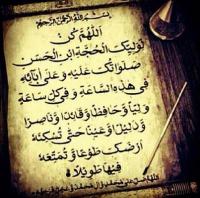 بسم الله الرحمن الرحيم
اللهم كن
لوليك الحجة ابن الحسن
صلواتك عليه وعلى آبائه
في هذه الساعة وفي كل ساعة
وليا وحافظا وقائدا وناصرا
ودليلا وعينا حتى تسكنه
أرضك طوعا وتمتعه
فيها طويلا